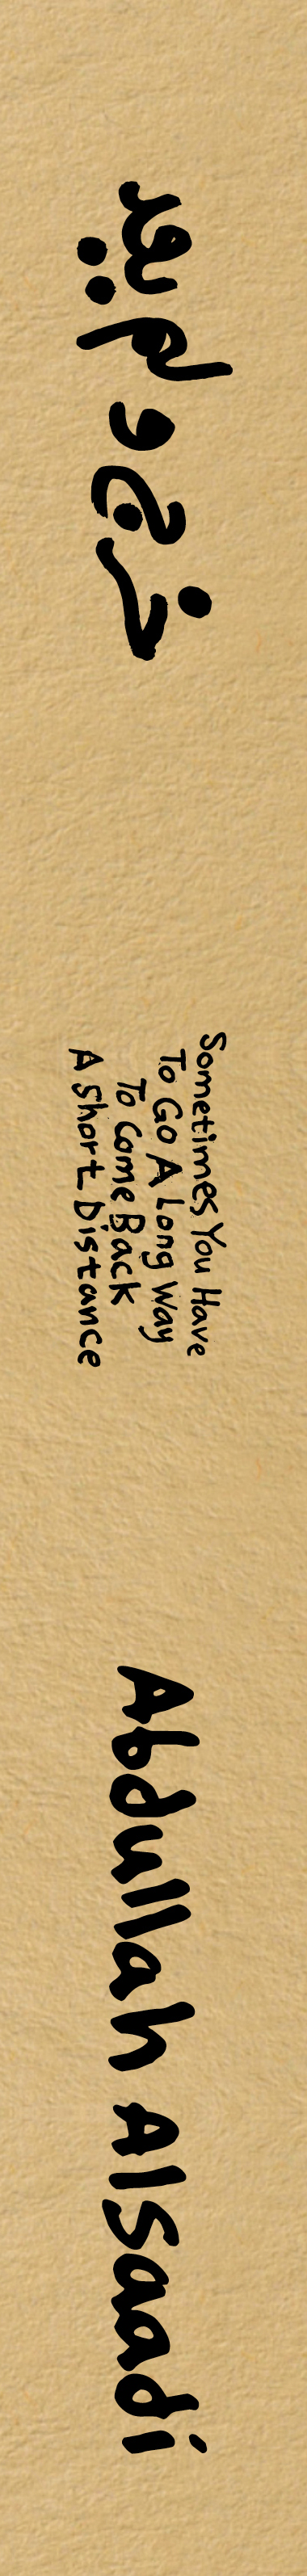 خرج ولم يعد
Sometimes You Have
To Go A Long Way
To Come Back
A Short Distance
Abdullah Alsaadi